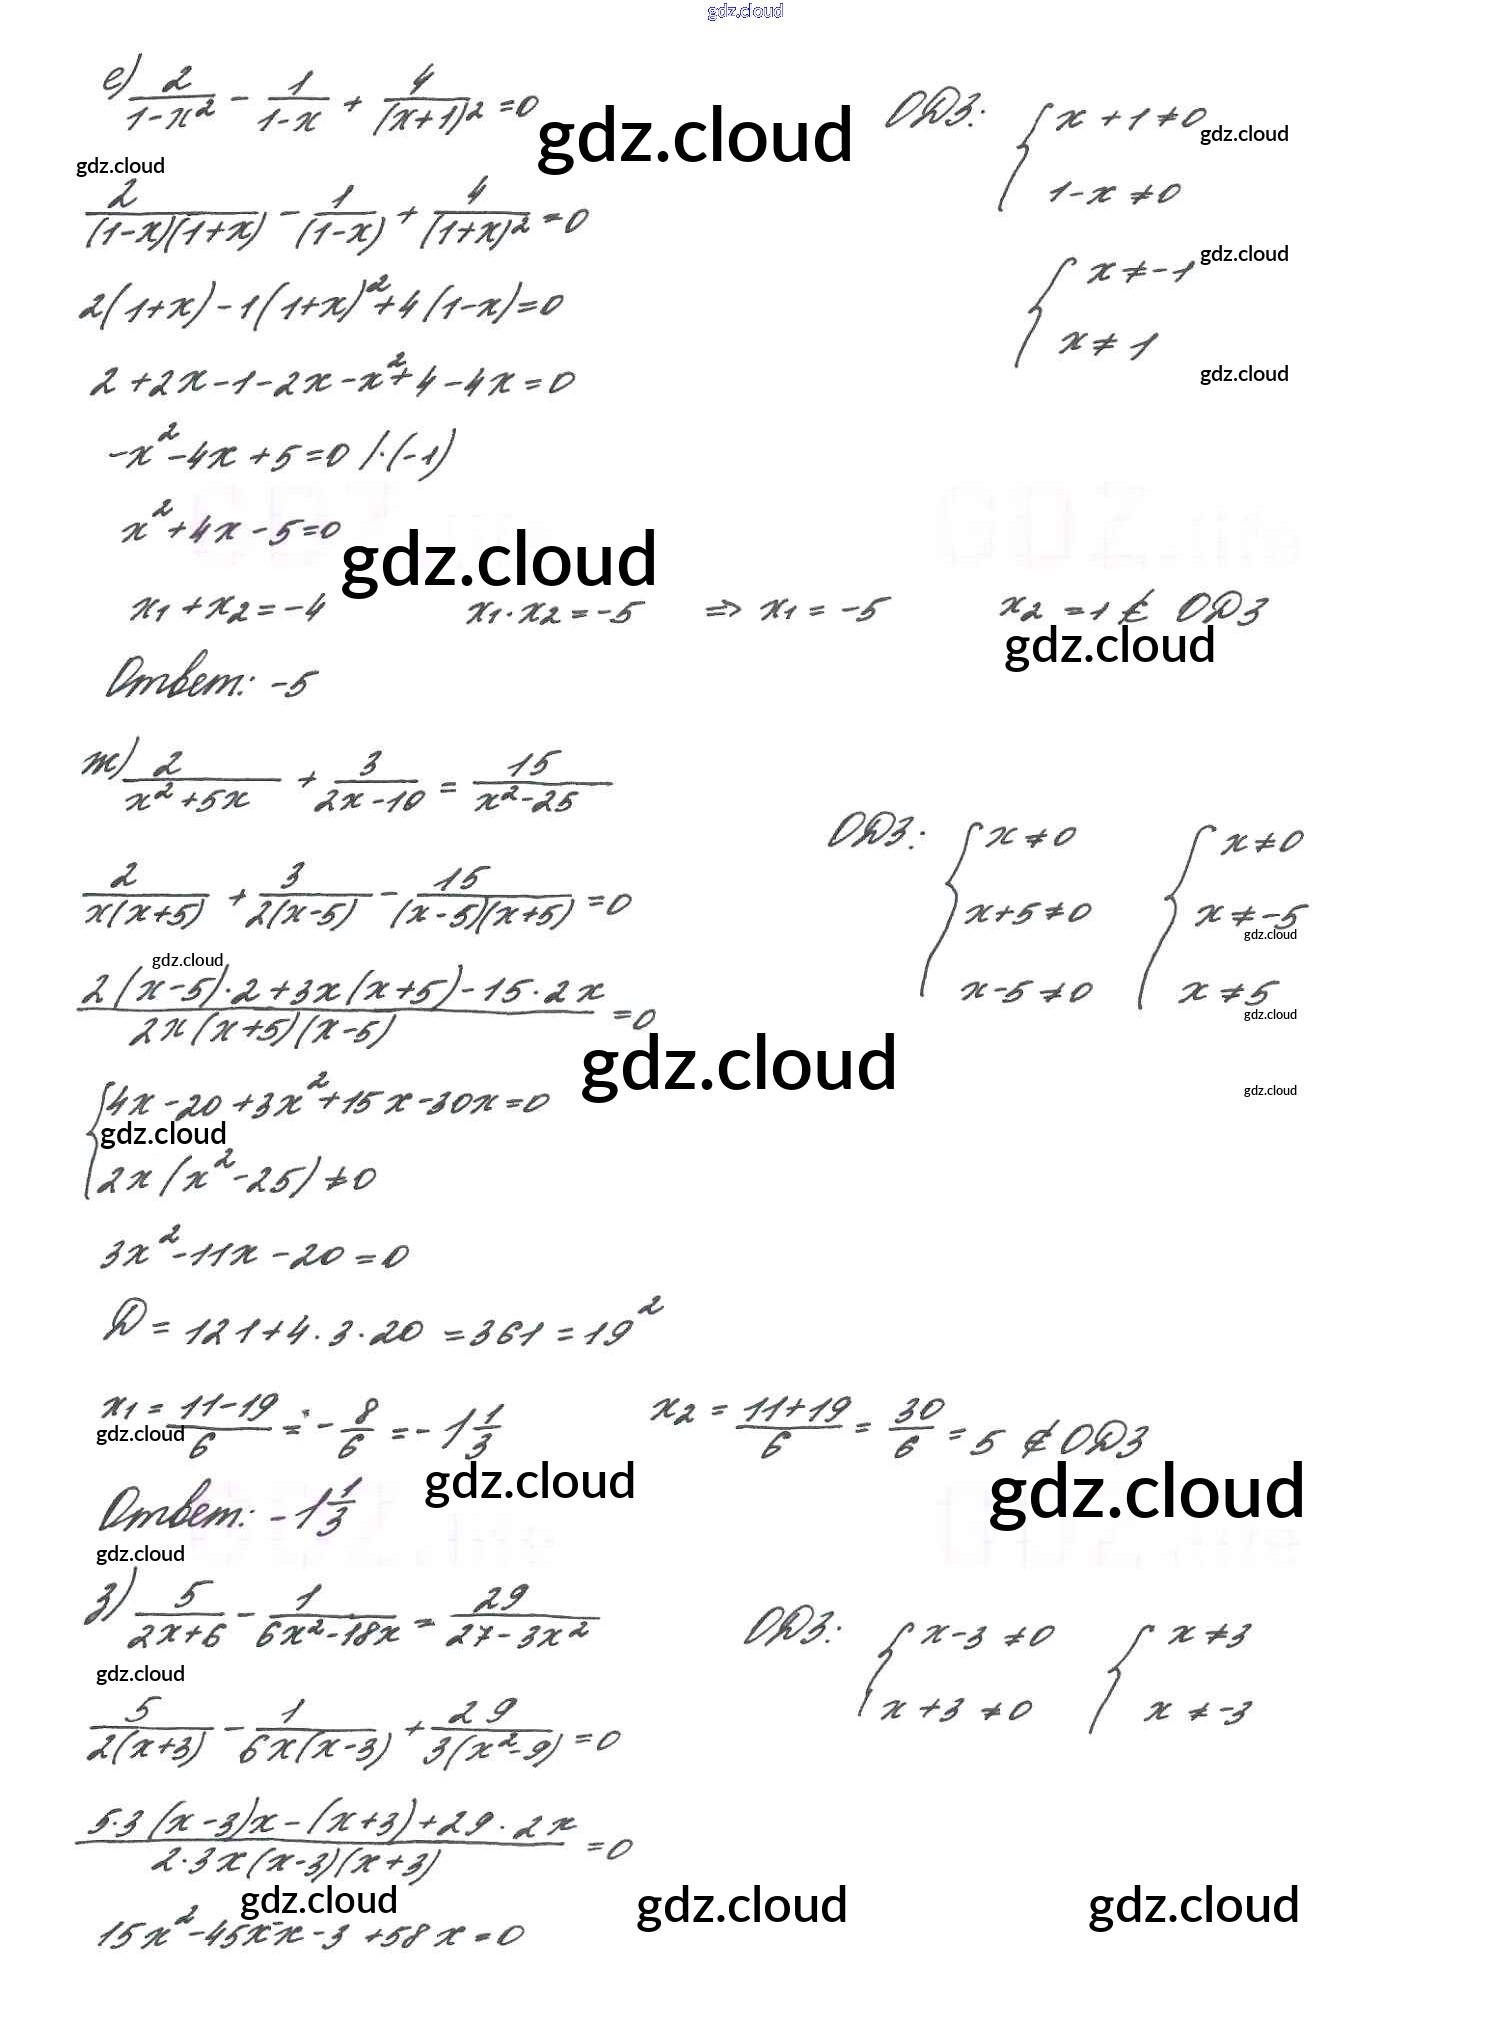 gdz.cloud
е) 2/(1-x²) - 1/(1-x) + 4/(x+1)² = 0
gdz.cloud
ОДЗ: { x+1≠0
gdz.cloud
1-x≠0
gdz.cloud
2/((1-x)(1+x)) - 1/(1-x) + 4/(1+x)² = 0
{ x≠-1
gdz.cloud
x≠1
gdz.cloud
2(1+x)-1(1+x)²+4(1-x)=0
2+2x-1-2x-x²+4-4x=0
-x²-4x+5=0 /·(-1)
x²+4x-5=0
gdz.cloud
x₁+x₂=-4 x₁·x₂=-5 => x₁=-5 x₂=1 ∉ ОДЗ
gdz.cloud
Ответ: -5
ж) 2/(x²+5x) + 3/(2x-10) = 15/(x²-25)
ОДЗ: { x≠0 { x≠0
x+5≠0 x≠-5
gdz.cloud
x-5≠0 x≠5
gdz.cloud
gdz.cloud
2/(x(x+5)) + 3/(2(x-5)) - 15/((x-5)(x+5)) = 0
gdz.cloud
(2(x-5)·2+3x(x+5)-15·2x)/(2x(x+5)(x-5)) = 0
gdz.cloud
{ 4x-20+3x²+15x-30x=0
gdz.cloud
2x(x²-25)≠0
3x²-11x-20=0
D=121+4·3·20=361=19²
x₁=(11-19)/6=-8/6=-1 1/3 x₂=(11+19)/6=30/6=5 ∉ ОДЗ
gdz.cloud
gdz.cloud
gdz.cloud
Ответ: -1 1/3
gdz.cloud
з) 5/(2x+6) - 1/(6x²-18x) = 29/(27-3x²)
ОДЗ: { x-3≠0 { x≠3
x+3≠0 x≠-3
gdz.cloud
5/(2(x+3)) - 1/(6x(x-3)) + 29/(3(x²-9)) = 0
(5·3(x-3)x-(x+3)+29·2x)/(2·3x(x-3)(x+3)) = 0
gdz.cloud
gdz.cloud
gdz.cloud
15x²-45x-x-3+58x=0